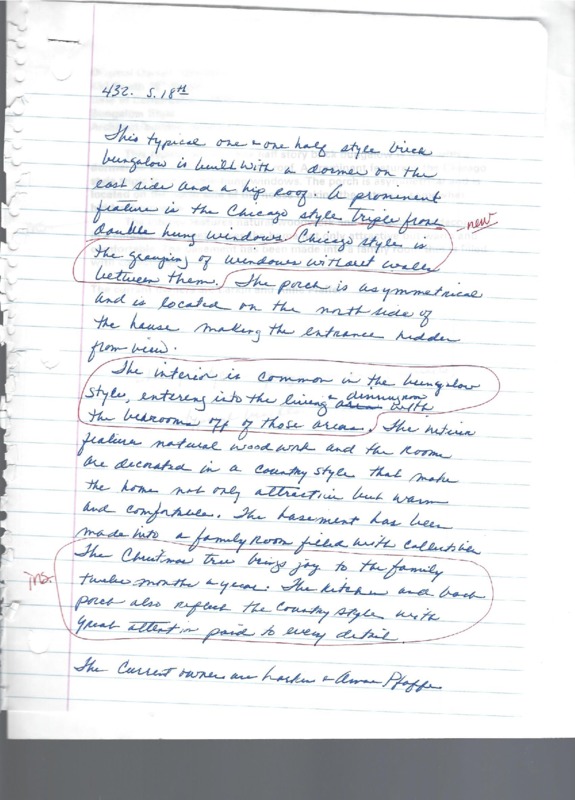 432. S. 18th
This typical one + one half style brick
bungalow is built with a dormer on the
east side and a hip roof. A prominent
feature is the Chicago style triple front
double hung windows. Chicago style is
-new
the grouping of windows without walls
between them. The porch is asymmetrical
and is located on the north side of
the house making the entrance hidden
from view.
The interior is common in the bungalow
style, entering into the living + dinningroom
areas with
the bedrooms off of those areas. The interior
feature natural wood work and the rooms
are decorated in a country style that make
the home not only attractive but warm
and comfortable. The basement has been
made into a family room filled with collectibles
The Christmas tree brings joy to the family
ins.
twelve months a year. The kitchen and back
porch also reflect the country style with
great attention paid to every detail.
The current owners are + Pfaffe